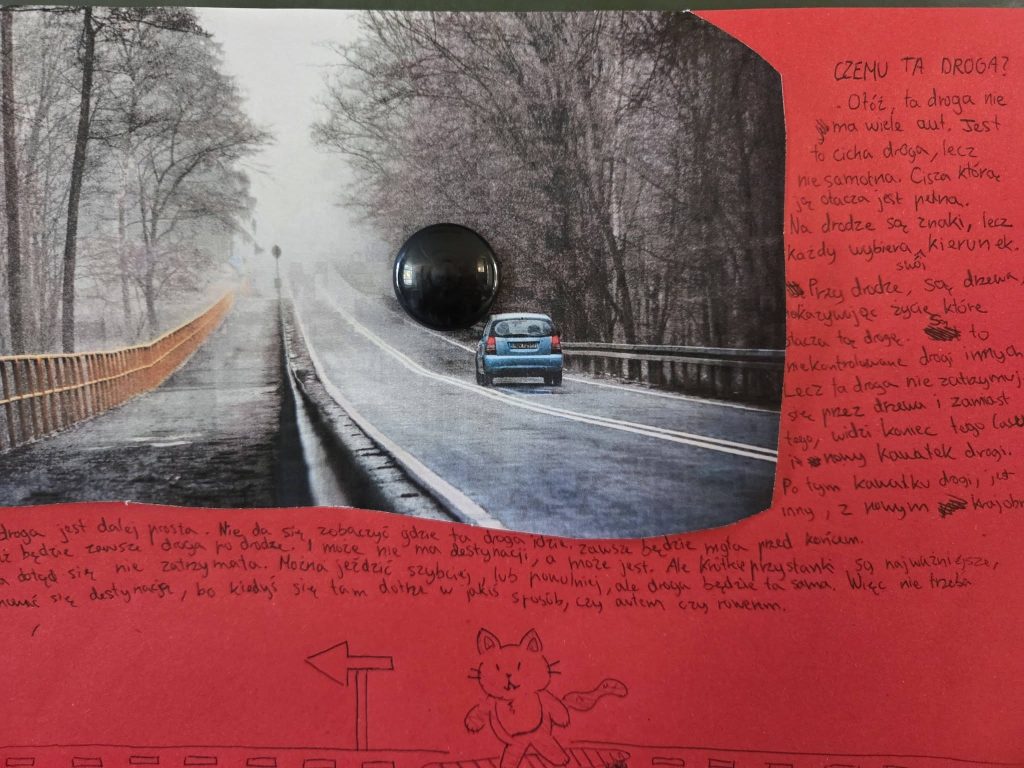 CZEMU TA DROGA?
- Otóż, ta droga nie
ma wiele aut. Jest
to cicha droga, lecz
nie samotna. Cisza którą
ją otacza jest pełna.
Na drodze są znaki, lecz
każdy wybiera swój kierunek.
Przy drodze, są drzewa,
okazywując życie, które
otacza tą drogę. to
niekontrolowane drogi innych
Lecz ta droga nie zatrzymuj
się przez drzewa i zamiast
tego, widzi koniec tego
i nowy kawałek drogi.
Po tym kawałku drogi, jest
inny, z nowym krajobr
droga jest dalej prosta. Nie da się zobaczyć gdzie ta droga idzie, zawsze będzie mgła przed końcem.
iż będzie zawsze droga po drodze. I może nie ma destynacji, a może jest. Ale krótkie przystanki są najważniejsze,
dotąd się nie zatrzymała. Można jeździć szybciej lub powolniej, ale droga będzie ta sama. Więc nie trzeba
się destynacją, bo kiedyś się tam dotrze w jakiś sposób, czy autem czy rowerem.